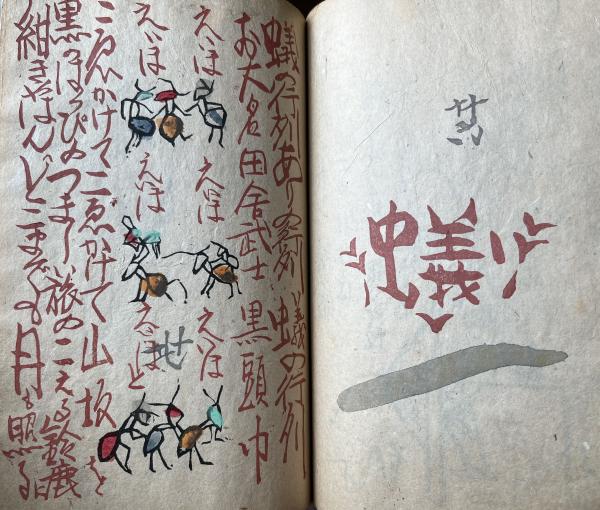 蟻
蟻の行列あり の行列 蟻の行列
お大名田舎武士 黒頭巾
えいほ えいほ えいほ
えいほ えいほ えいほと
こゑかけてこゑかけて山坂を
黒の つましい旅のこえる鈴鹿
紺きゃはんどこまでも月も照る